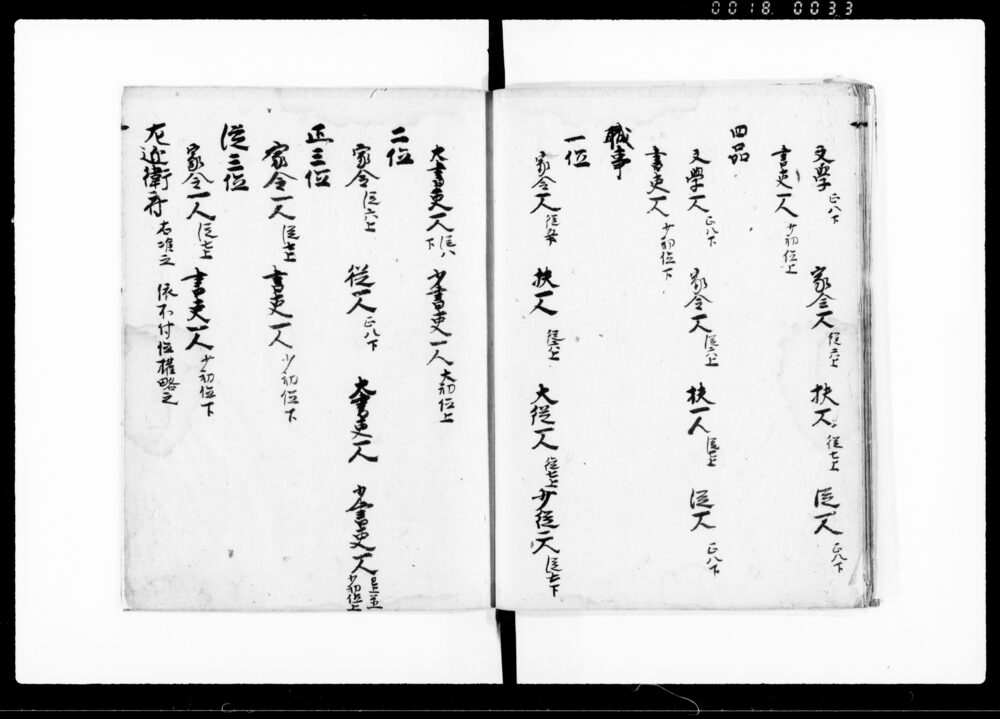 0018 0033
文學 正八下 家令一人 従六上 扶一人 従七上 従一人 正八下
書吏一人 少初位上
四品
文學一人 正八下 家令一人 従六上 扶一人 従七上 従一人 正八下
書吏一人 少初位下
職事
一位
家令一人 従五下 扶一人 従六上 大従一人 従七上 少従一人 従七下
大書吏一人 従八下 少書吏一人 大初位上
二位
家令 従六上 従一人 正八下 大書吏一人 少書吏一人 已上並少初位上
正三位
家令一人 従七上 書吏一人 少初位下
従三位
家令一人 従七上 書吏一人 少初位下
左近衛府 右准之 依不付位権略之